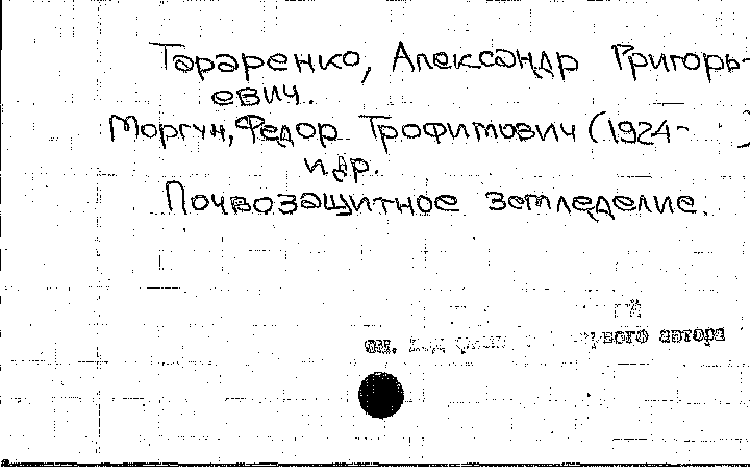 Тараренко, Александр Григорь-
евич.
Моргун, Федор Трофимович (1924-    )
и др.
Почвозащитное земледелие.
см. под фам. первого автора